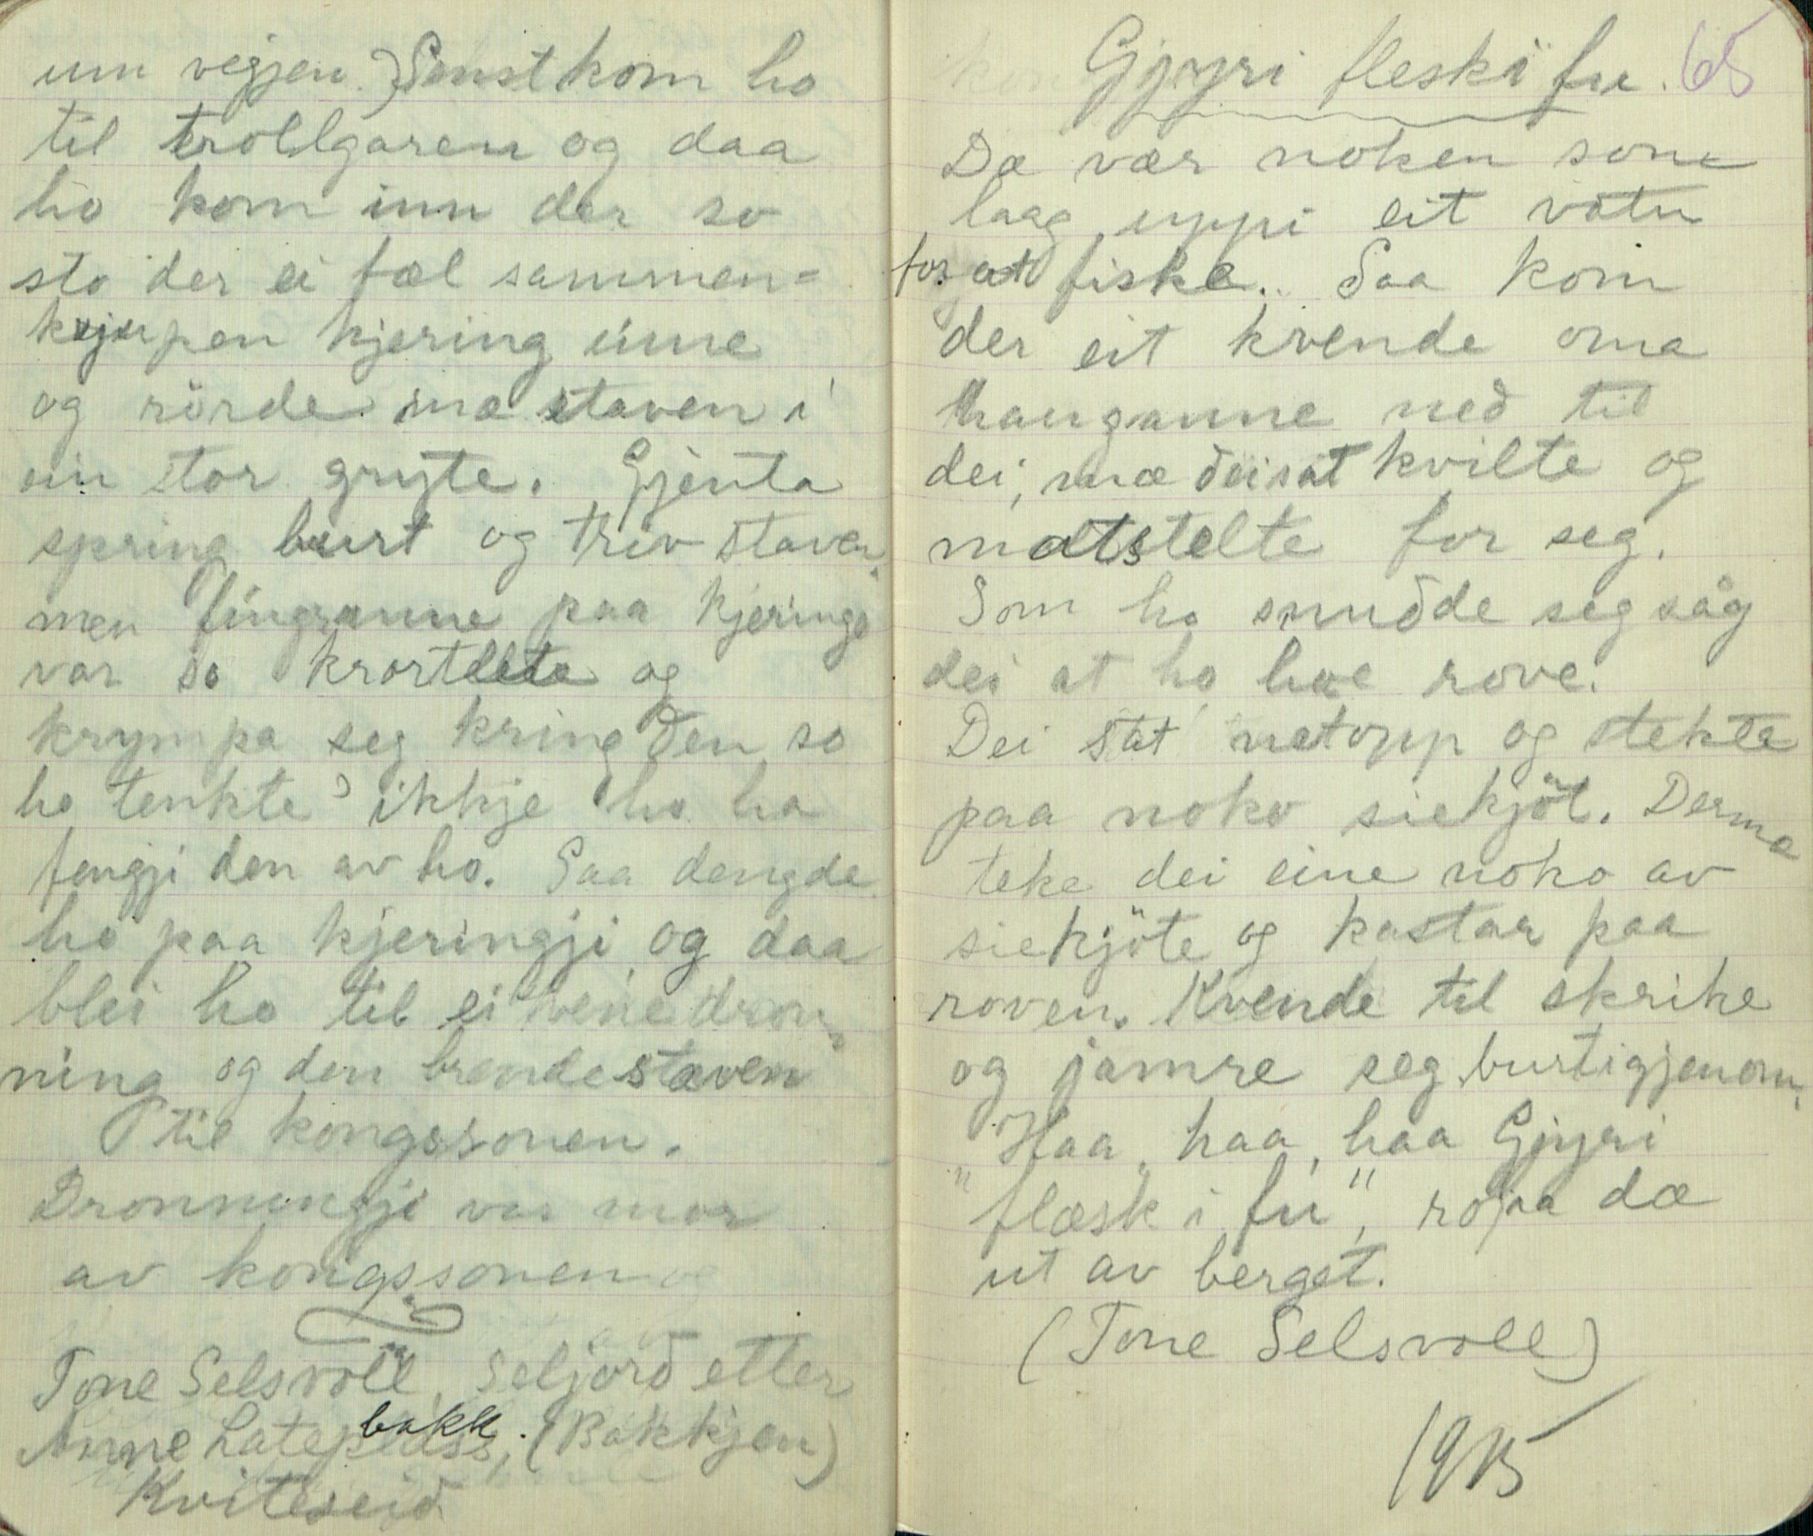 um vegjen. Senst kom ho
til trollgaren og daa
ho kom inn der so
sto der ei fæl sammen-
krjupen kjering inne
og rörde mæ staven i
ein stor gryte. Gjenta
spring burt og treiv staven
men fingranne paa kjeringe
var so krortelete og
krympa seg kring den so
ho tenkte ikkje ho ha
fengji den av ho. Saa dengde
ho paa kjeringji og daa
blei ho til ei vene dron-
ning og den brende staven
til kongssonen.
Dronningji var mor
av kongssonen og
Tone Selsvoll, Seljord etter
bakk.
Anne (Bakkjen)
Kviteseid
65
Gjyri fleski fu.
Dæ vær noken som
laag uppi eit vatn
for at fiske. Saa kom
der eit kvende oma
hauganne neð til
dei, mæ dei sat kvilte og
matstelte for seg.
Som ho snudde seg såg
dei at ho hae rove.
Dei sat netopp og stekte
paa noko siekjöt. Dermæ
teke dei eine noko av
siekjöte og kastar paa
roven. Kvende til skrike
og jamre seg burtigjenom,
"Haa, haa, haa Gjyri
flæsk i fu", ropa dæ
ut av berget.
(Tone Selsvoll)
1915